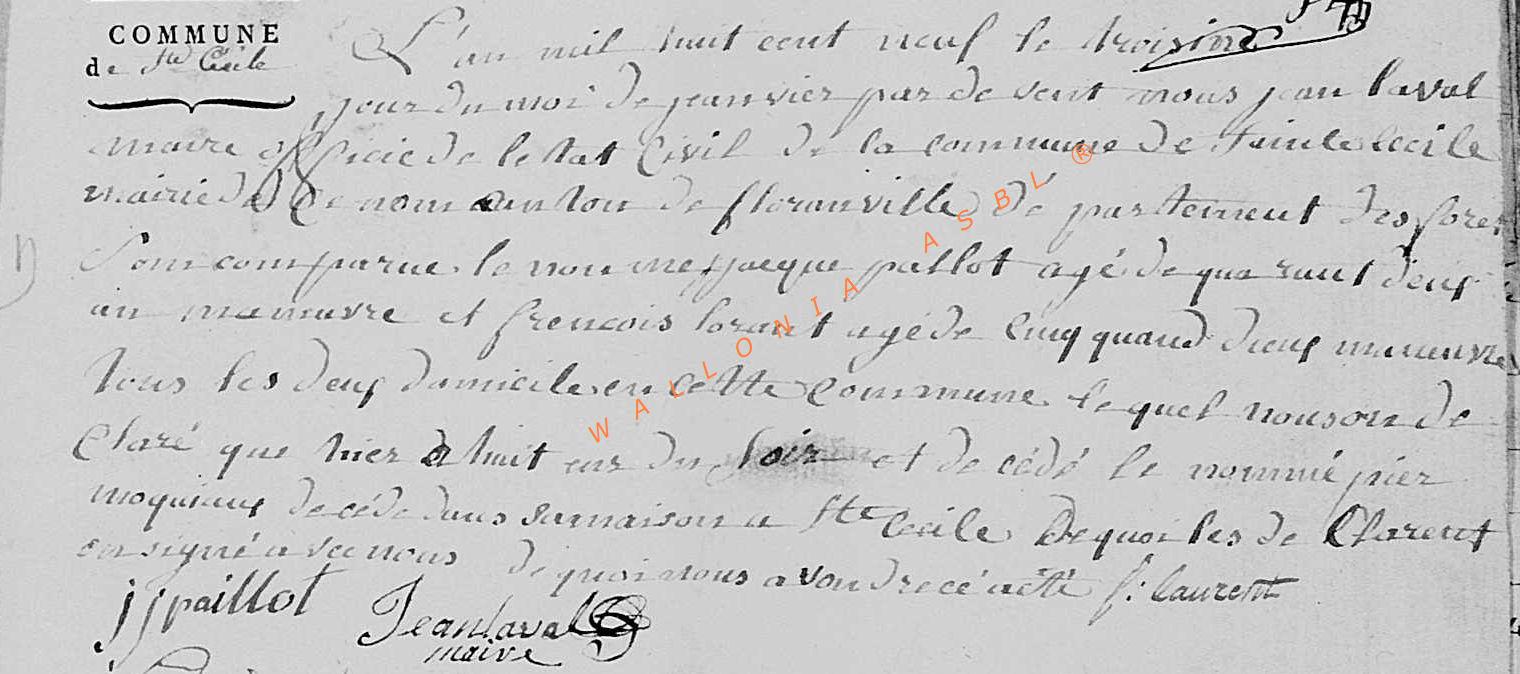 COMMUNE
de Ste Cécile
L'an mil huit cent neuf le troisime
jour du moi de jeanvier par de vent nous jean laval
maire officie de letat Civil de la commune de Sainte Cecile
mairie de Ce nom canton de floranville de partement des fores
Som comparue le nommes jacque pallot agé de quarant deus
an maneuvre et frencois lorant agé de Cinqquand deus maneuvre
tous les deus domicile en Cette Commune lequel nous on de
Claré que hier a huit eur du soir et de cédé le nommé pier
moquiaus decéde dans sa maison a Ste Cecile Dequoi les de Clarent
on signé avec nous de quoi nous avon drecé acté f: laurent
jjpaillot Jean laval
maire
WALLONIA ASBL ®